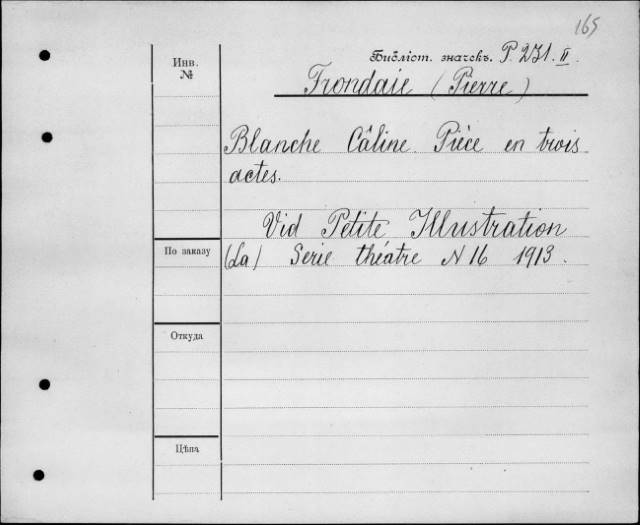 165
Инв. №
Библіот. значекъ. P. 231. II.
Frondaie (Pierre)
Blanche Câline. Pièce en trois
actes.
Vid Petite Illustration
По заказу
(La) Serie théatre N 16 1913.
Откуда
Цѣна